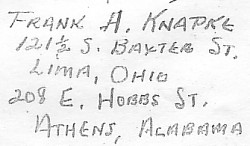 FRANK H. KNAPKE
121 1/2 S. BAXTER ST.
LIMA, OHIO
208 E. HOBBS ST.
ATHENS, ALABAMA